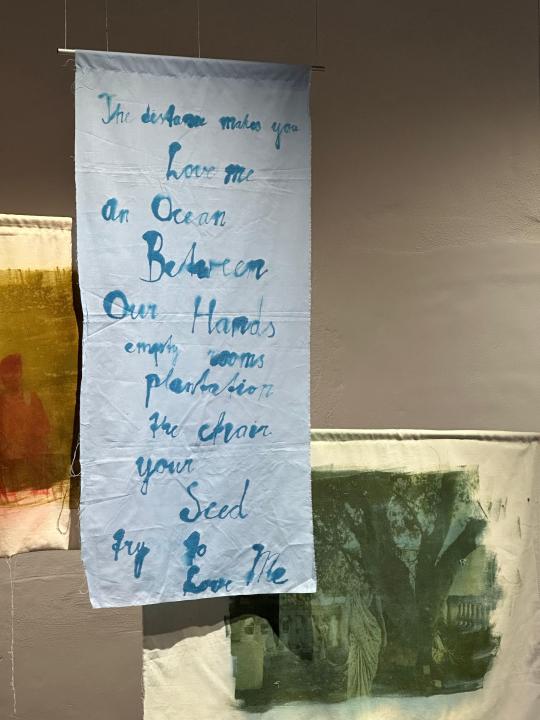 The distance makes you
Love me
an Ocean
Between
Our Hands
empty rooms
plantation
the chair
your
Seed
try to
Love Me